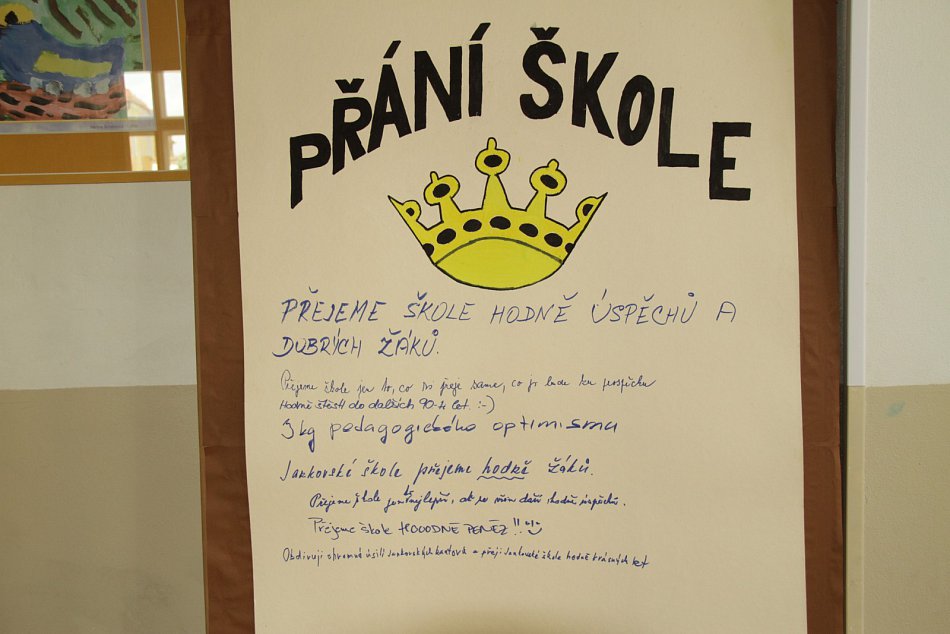 PŘÁNÍ ŠKOLE
PŘEJEME ŠKOLE HODNĚ ÚSPĚCHŮ A
DOBRÝCH ŽÁKŮ.
Přejeme škole jen to, co si přeje sama, co jí bude ku prospěchu
Hodně štěstí do dalších 90-ti let. :-)
3 kg pedagogického optimismu
Jankovské škole přejeme hodně žáků.
Přejeme škole jen to nejlepší, ať se všem daří hodně úspěchů.
Přejeme škole HOOODNĚ PENĚZ!!
Obdivuji ohromné úsilí Jankovských a přeji Jankovské škole hodně krásných let